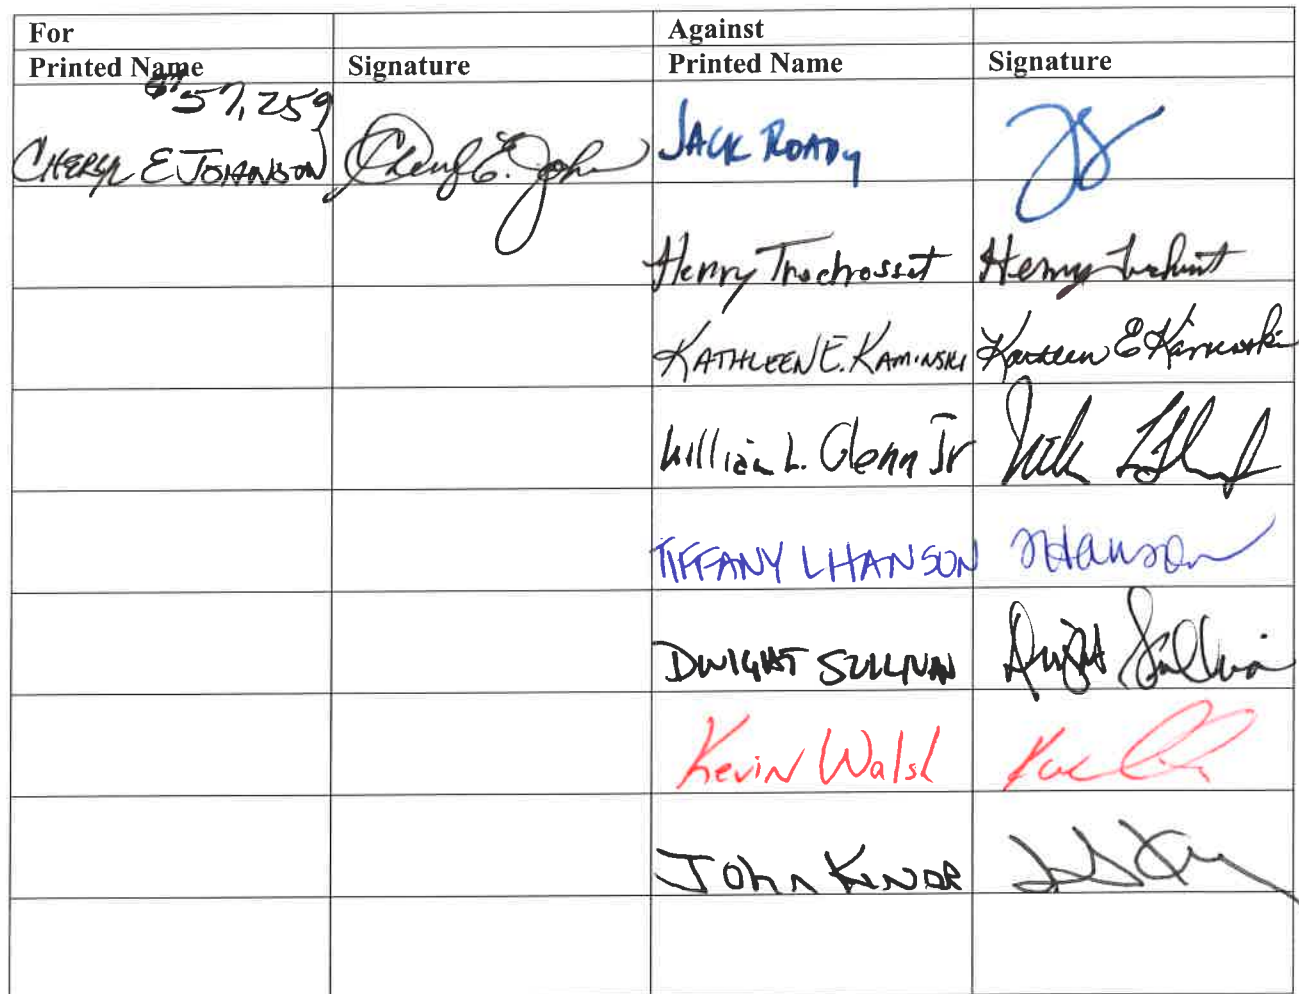 For Against
Printed Name Signature Printed Name Signature
$57,259
CHERYL E JOHNSON Cheryl E. John JACK ROADY
Henry Trochesset Henry
KATHLEEN E. KAMINSKI Kathleen E Kaminski
William L. Glenn Jr
TIFFANY L HANSON THanson
DWIGHT SULLIVAN Dwight Sullivan
Kevin Walsh
JOHN KINARD